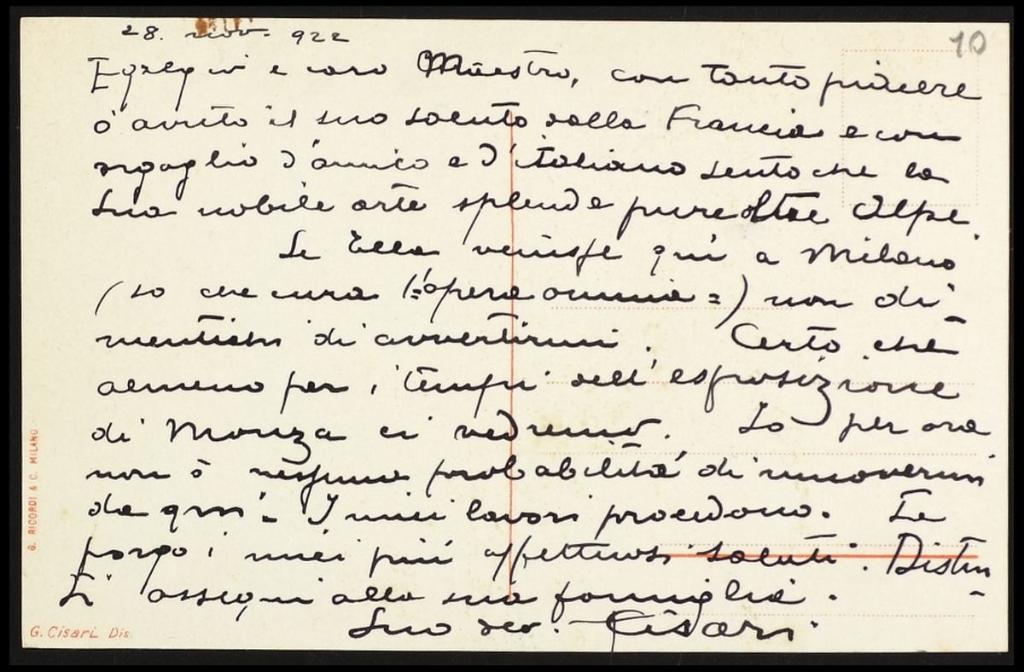 28. nov. 922
10
Egregio e caro Maestro, con tanto piacere
ò avuto il suo saluto dalla Francia e con
orgoglio d'amico e d'italiano sento che la
Sua nobile arte splende pure oltre Alpe.
Se Ella venisse quì a Milano
(so che cura l'=opera omnia=) non di-
mentichi di avvertirmi. Certo che
almeno per i tempi dell'esposizione
di Monza ci vedremo. Io per ora
non ò nessuna probabilità di muovermi
da quì. I miei lavori procedono. Le
porgo i miei più affettuosi saluti. Distin-
ti ossequi alla sua famiglia.
Suo dev. Cisari.
G. RICORDI & C. MILANO
G. Cisari Dis.